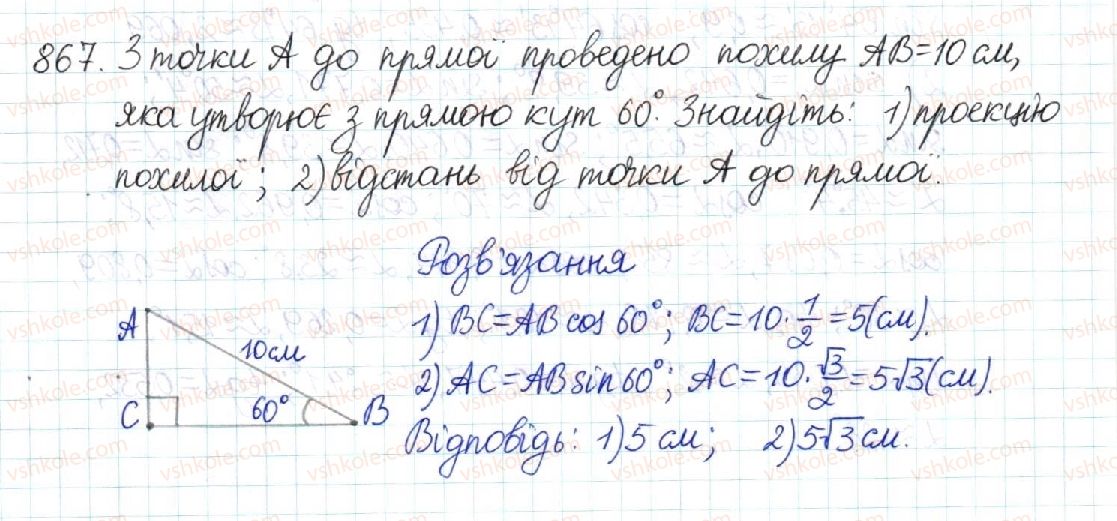 867. З точки А до прямої проведено похилу АВ=10 см,
яка утворює з прямою кут 60°. Знайдіть: 1) проекцію
похилої; 2) відстань від точки А до прямої.
Розв'язання
1) BC=AB cos 60°; BC=10·1/2=5(см).
2) AC=AB sin 60°; AC=10·√3/2=5√3(см).
Відповідь: 1) 5 см; 2) 5√3 см.
A
10см
C
60°
B
vshkole.com